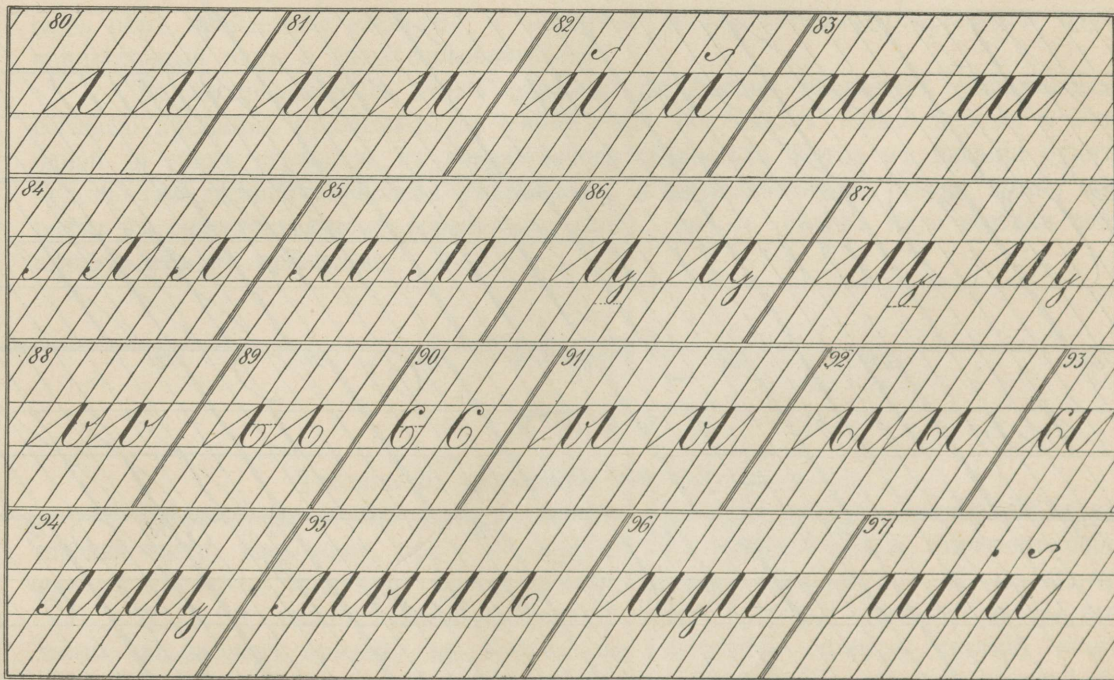 80 ı ı 81 и и 82 й й 83 ш ш
84 л л 85 м м 86 ц ц 87 щ щ
88 ь ь 89 ь ь 90 ь ь 91 ы ы 92 ы ы 93 ы
94 95 мышь 96 щи 97 шій